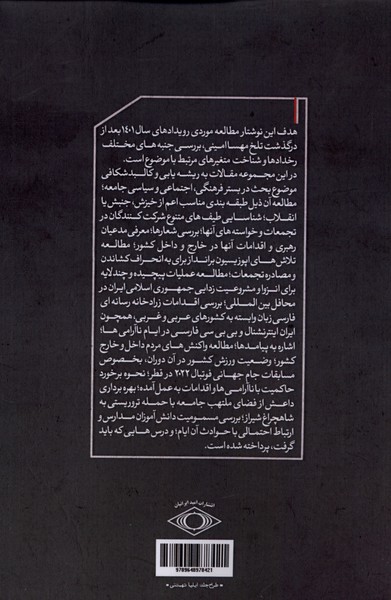 هدف این نوشتار مطالعه موردی رویدادهای سال ۱۴۰۱ بعد از
درگذشت تلخ مهسا امینی، بررسی جنبه های مختلف
رخدادها و شناخت متغیرهای مرتبط با موضوع است.
در این مجموعه مقالات به ریشه یابی و کالبدشکافی
موضوع بحث در بستر فرهنگی، اجتماعی و سیاسی جامعه؛
مطالعه آن ذیل طبقه بندی مناسب اعم از خیزش، جنبش یا
انقلاب؛ شناسایی طیف های متنوع شرکت کنندگان در
تجمعات و خواسته های آنها؛ بررسی شعارها؛ معرفی مدعیان
رهبری و اقدامات آنها در خارج و داخل کشور؛ مطالعه
تلاش های اپوزیسیون برانداز برای به انحراف کشاندن
و مصادره تجمعات؛ مطالعه عملیات پیچیده و چندلایه
برای انزوا و مشروعیت زدایی جمهوری اسلامی ایران در
محافل بین المللی؛ بررسی اقدامات زرادخانه رسانه ای
فارسی زبان وابسته به کشورهای عربی و غربی، همچون
ایران اینترنشنال و بی بی سی فارسی در ایام ناآرامی ها؛
اشاره به پیامدها؛ مطالعه واکنش های مردم داخل و خارج
کشور؛ وضعیت ورزش کشور در آن دوران، بخصوص
مسابقات جام جهانی فوتبال ۲۰۲۲ در قطر؛ نحوه برخورد
حاکمیت با ناآرامی ها و اقدامات به عمل آمده؛ بهره برداری
داعش از فضای ملتهب جامعه با حمله تروریستی به
شاهچراغ شیراز؛ بررسی مسمومیت دانش آموزان مدارس و
ارتباط احتمالی با حوادث آن ایام؛ و درس هایی که باید
گرفت، پرداخته شده است.
9789648970421
«طرح جلد: ایلیا تهمتنی»